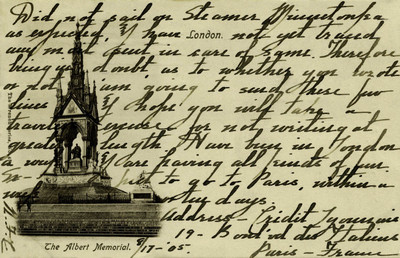 Did not sail on Steamer Minnetonka
as expected, & have not yet heard
London.
any mail sent in care of same. Therefore
being in doubt, as to whether you wrote
or not am going to send these few
lines & hope you will take a
traveler's excuse for not writing at
greater length. Have been in London
a week & are having all kinds of fun.
to go to Paris, within a
few days.
Address - Credit Lyonnais
The Albert Memorial.
8/17-05.
19 - Boul'd des Italiens
Paris - France